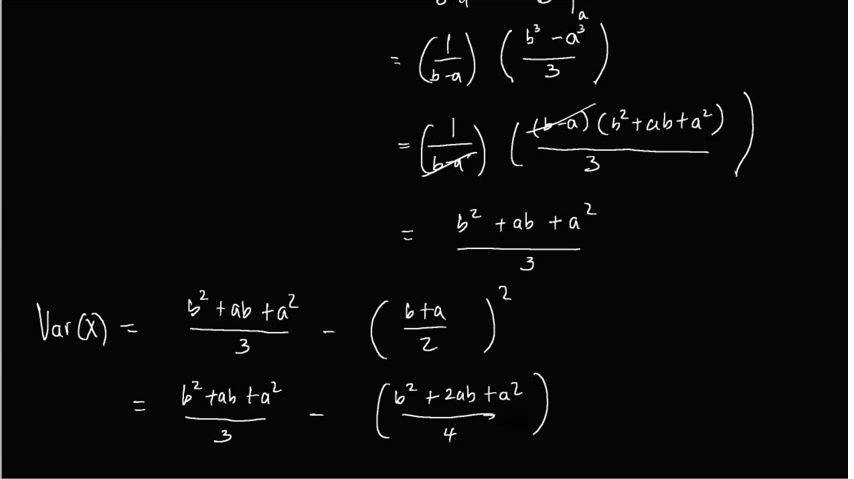 a
= (1/(b-a)) ((b³ - a³)/3)
= (1/(b-a)) (((b-a)(b² + ab + a²))/3)
= (b² + ab + a²)/3
Var(X) = (b² + ab + a²)/3 - ((b+a)/2)²
= (b² + ab + a²)/3 - ((b² + 2ab + a²)/4)